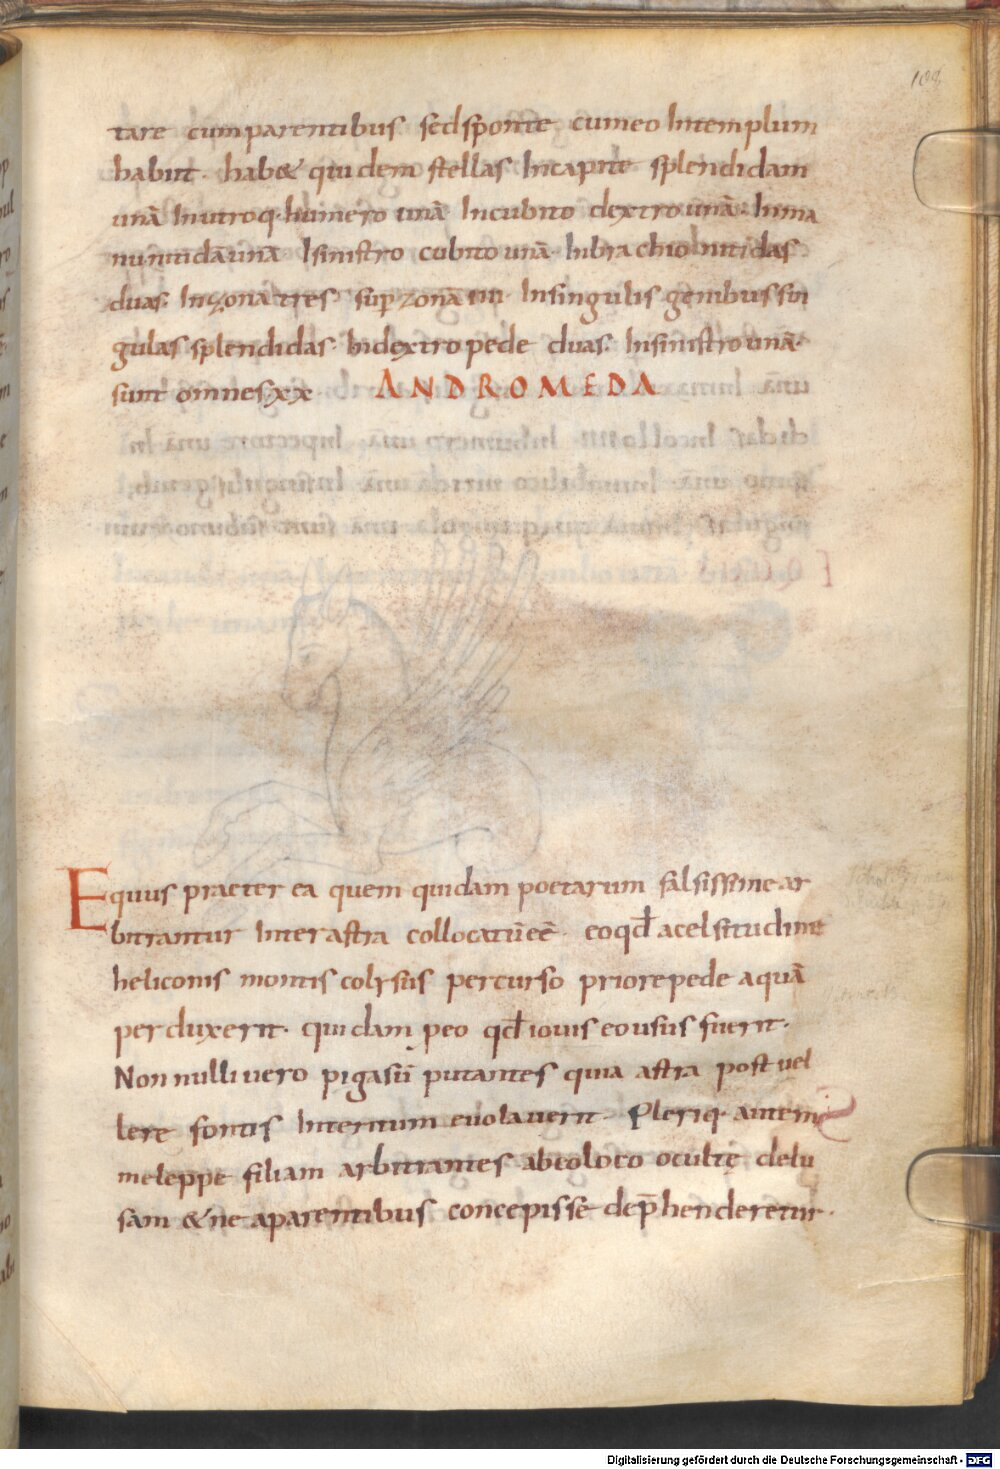 108
tare cumparentibus sedsponte cumeo Intemplum
habiit. hab& quidem stellas Incapite splendidam
unā Inutroq· humero unā Incubito dextro unā· Inma
nu nitidā unā Isinistro cubito unā Inbrachio nitidas
duas. Inzona tres sup zonā IIII· Insingulis genibus sin
gulas splendidas· Indextro pede duas. Insinistro unā·
sunt omnes XX ANDROMEDA
Equus praeter ea quem quidam poetarum falsissime ar
bitrantur Inter astra collocatū eē· eoqđ acelsitudine
heliconis montis colrsus percurso priore pede aquā
perduxerit· quidam peo qđ iouis eo usus fuerit·
Non nulli uero pigasū putantes quia astra post uel
lere fontis Internum euolauerit· Pleriq· autem
meleppe filiam arbitrantes abeoloco oculte delu
sam & ne aparentibus concepisse dep̄henderetur·
Digitalisierung gefördert durch die Deutsche Forschungsgemeinschaft - DFG